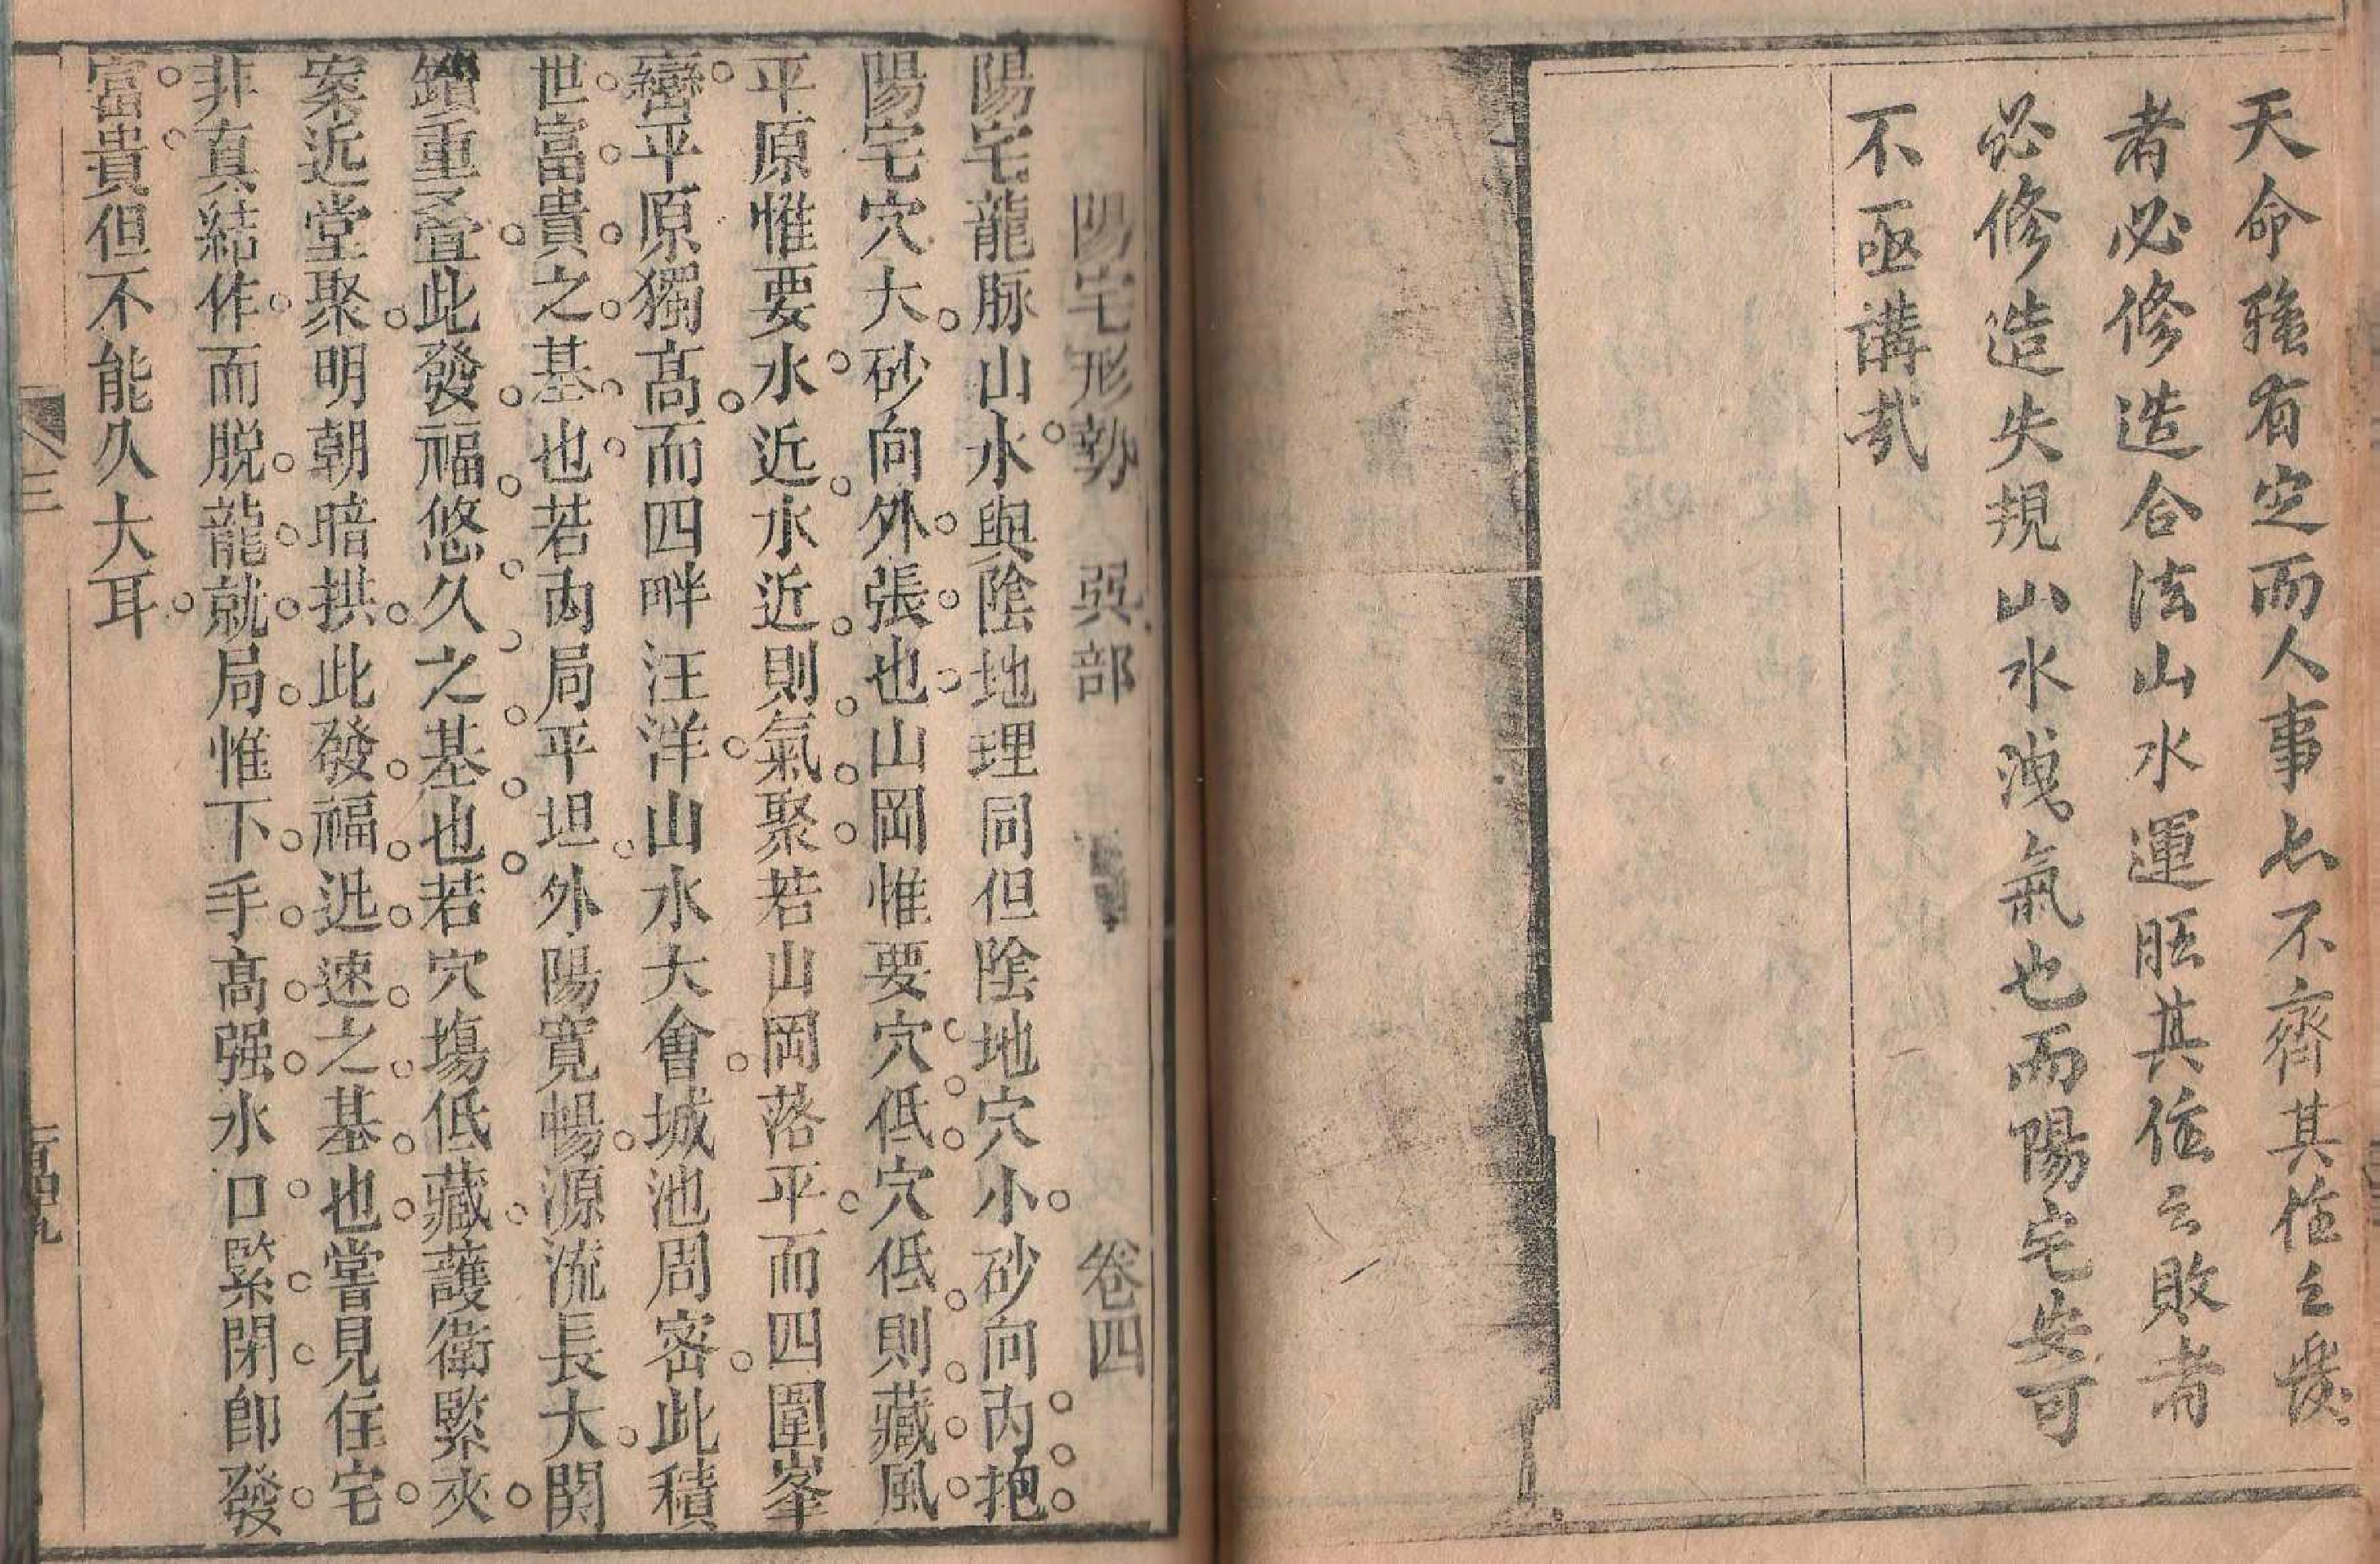 天命雖有定而人事亦不齊其住之發
者必修造合法山水運旺其住之敗者
必修造失規山水洩氣也而陽宅安可
不亟講哉
陽宅形勢 巽部 卷四
陽宅龍脉山水與陰地理同但陰地穴小砂向内抱
陽宅穴大砂向外張也山岡惟要穴低穴低則藏風
平原惟要水近水近則氣聚若山岡落平而四圍峯
巒平原獨髙而四畔汪洋山水大會城池周密此積
世富貴之基也若内局平坦外陽寛暢源流長大関
鎖重疊此發福悠久之基也若穴塲低藏護衛緊夾
案近堂聚明朝暗拱此發福迅速之基也嘗見住宅
非真結作而脱龍就局惟下手髙强水口緊閉即發
富貴但不能久大耳
三